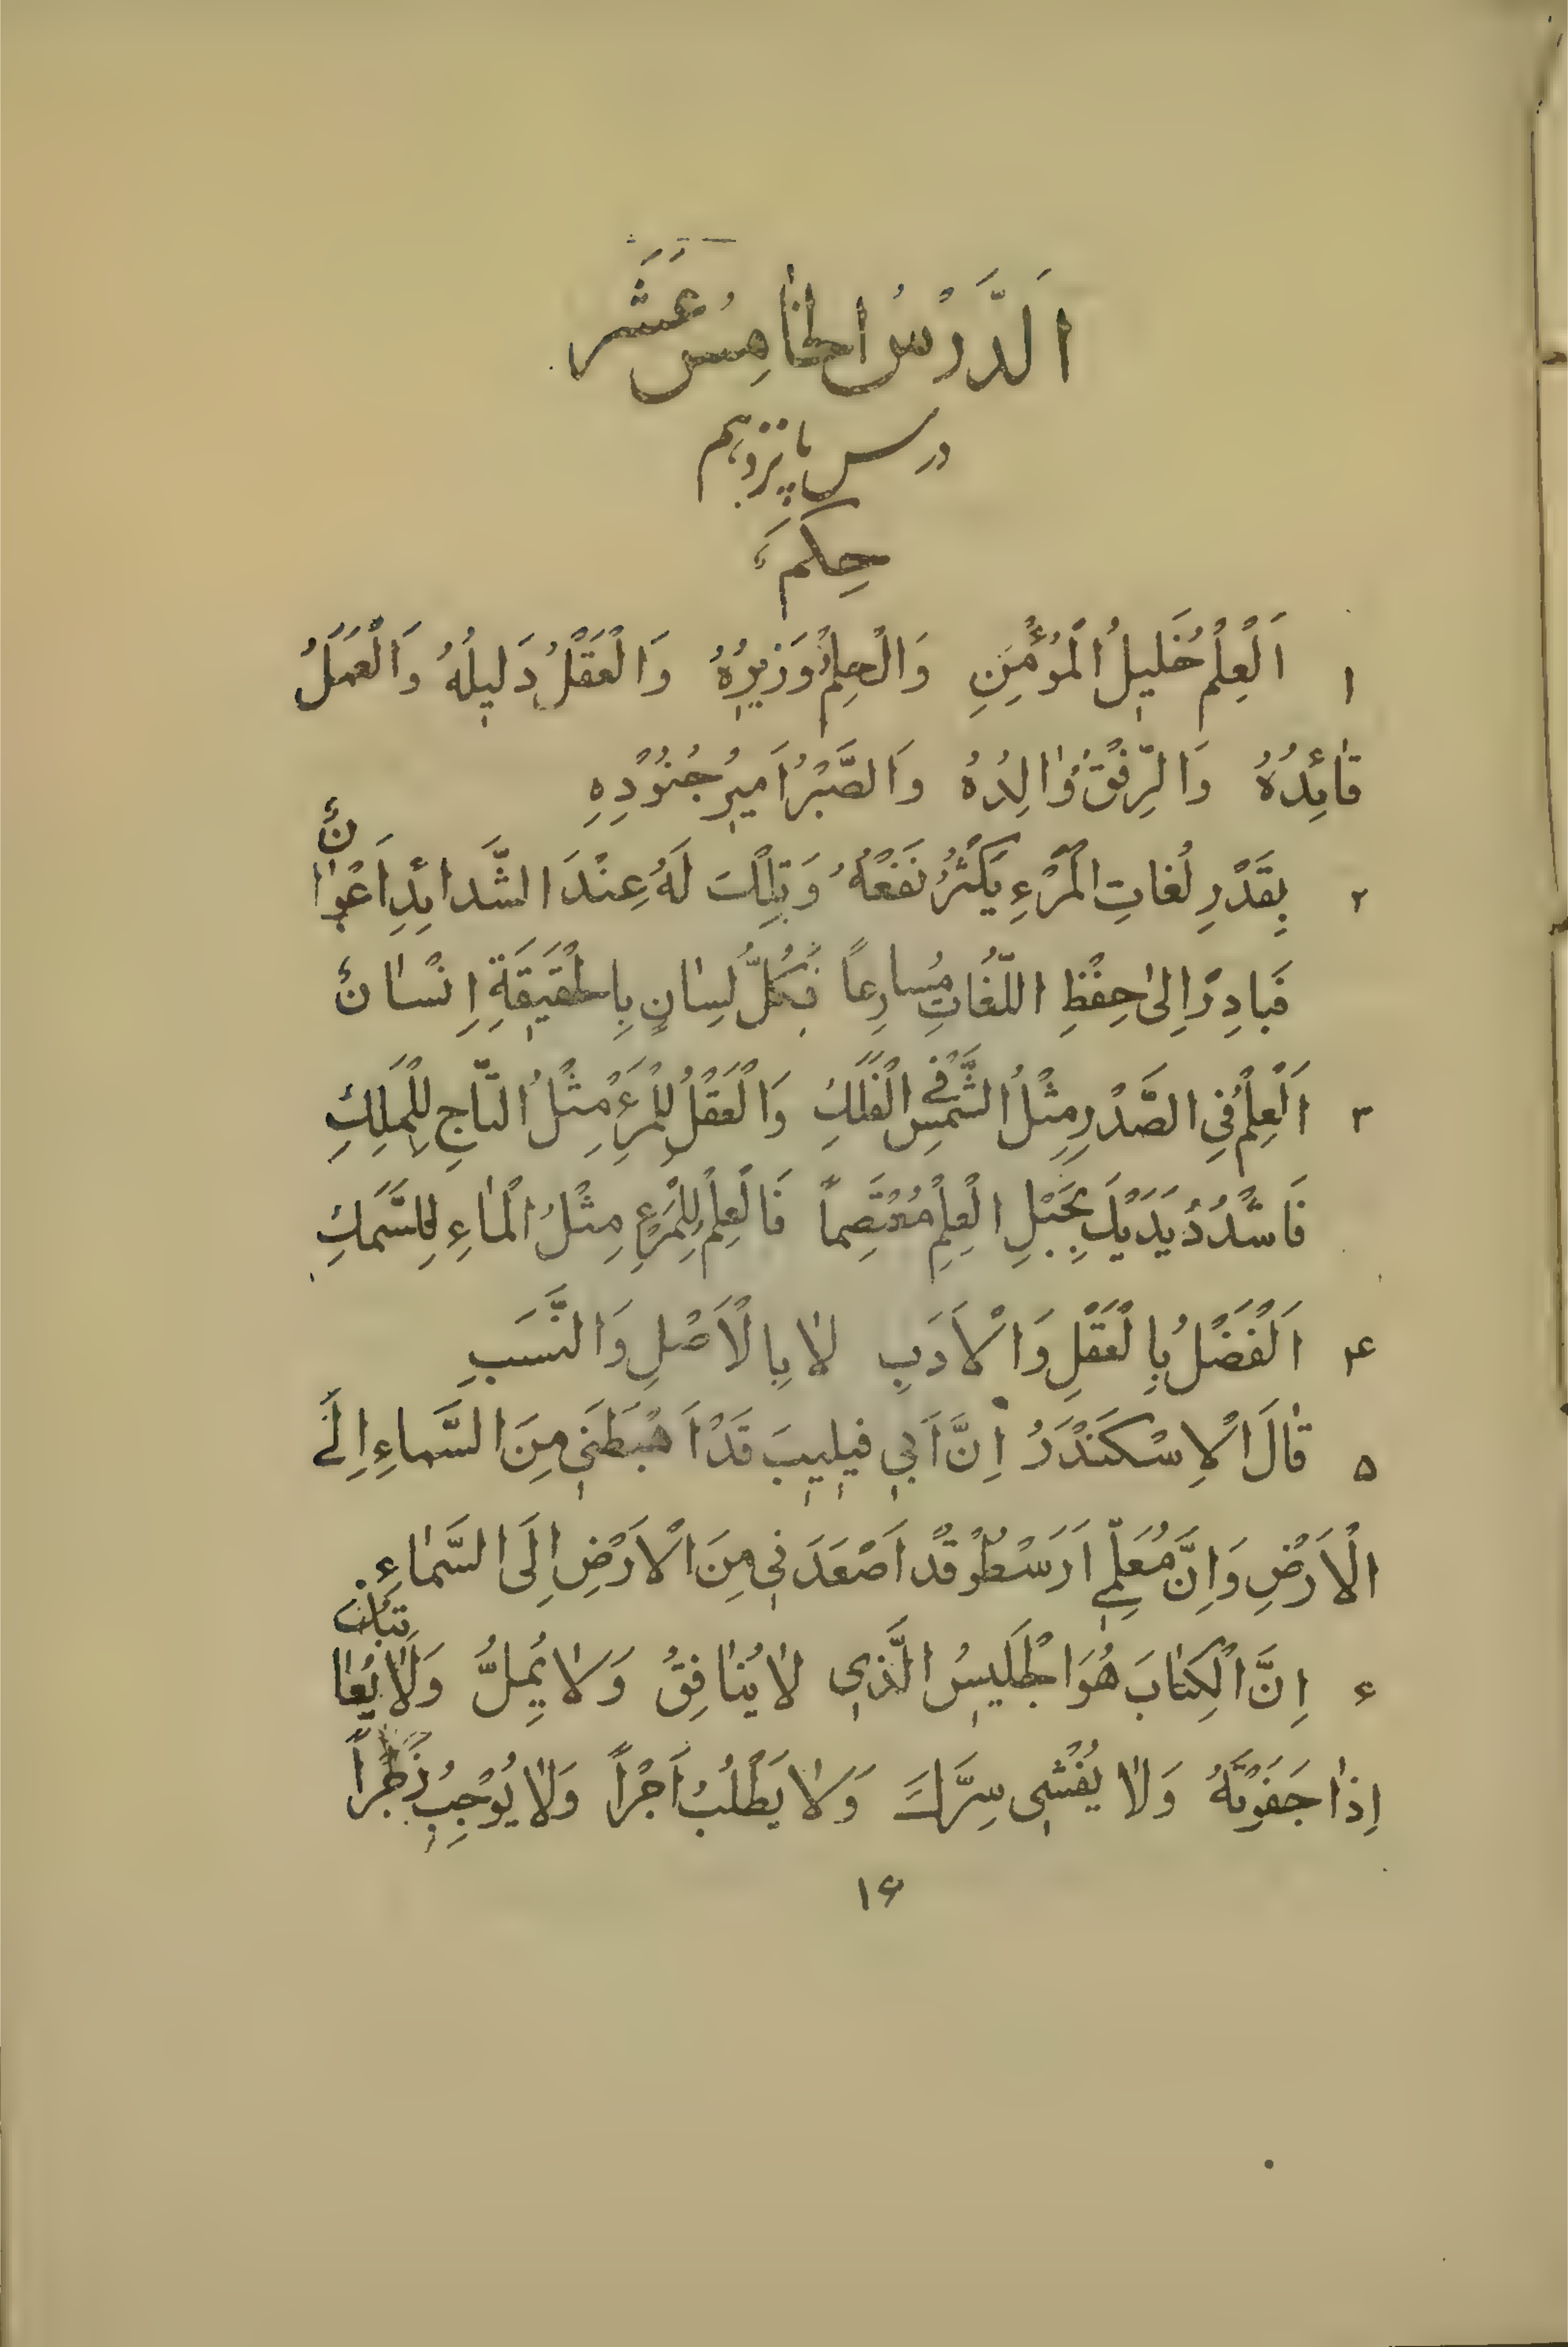 اَلدَّرْسُ الخٰامِسُ عَشَرَ
درس پانزدهم
حِکَمٌ
۱ اَلْعِلْمُ خَليلُ الْمُؤْمِنِ وَالْحِلْمُ وَزيرُهُ وَالْعَقْلُ دَليلُهُ وَالْعَمَلُ
قٰائِدُهُ وَالرِّفْقُ وٰالِدُهُ وَالصَّبْرُ اَميرُ جُنُوْدِهِ
۲ بِقَدْرِ لُغاتِ الْمَرْءِ يَکْثُرُ نَفْعُهُ وَتِلْکَ لَهُ عِنْدَ الشَّدائِدِ اَعْوٰانٌ
فَبادِرْ اِلىٰ حِفْظِ اللُّغاتِ مُسارِعاً فَکُلُّ لِسٰانٍ بِالْحَقيقَةِ اِنْسٰانٌ
۳ اَلْعِلْمُ فِي الصَّدْرِ مِثْلُ الشَّمْسِ فِي الْفَلَكِ وَالْعَقْلُ لِلْمَرْءِ مِثْلُ التّٰاجِ لِلْمَلِكِ
فَاشْدُدْ يَدَيْكَ بِحَبْلِ الْعِلْمِ مُعْتَصِماً فَالْعِلْمُ لِلْمَرْءِ مِثْلُ الْمٰاءِ لِلسَّمَكِ
۴ اَلْفَضْلُ بِالْعَقْلِ وَالْاَدَبِ لاٰ بِالْاَصْلِ وَالنَّسَبِ
۵ قٰالَ الْاِسْکَنْدَرُ اِنَّ اَبي فيليبَ قَدْ اَهْبَطَنى مِنَ السَّماءِ اِلَى
الْاَرْضِ وَاِنَّ مُعَلِّمي اَرَسْطُو قَدْ اَصْعَدَني مِنَ الْاَرْضِ اِلَى السَّمٰاءِ
۶ اِنَّ الْکِتٰابَ هُوَ الْجَليسُ الَّذي لاٰ يُنٰافِقُ وَلاٰ يُمِلُّ وَلاٰ يُعٰاتِبُكَ
اِذٰا جَفَوْتَهُ وَلاٰ يُفْشي سِرَّكَ وَلاٰ يَطْلُبُ اَجْراً وَلاٰ يُوْجِبُ
۱۶